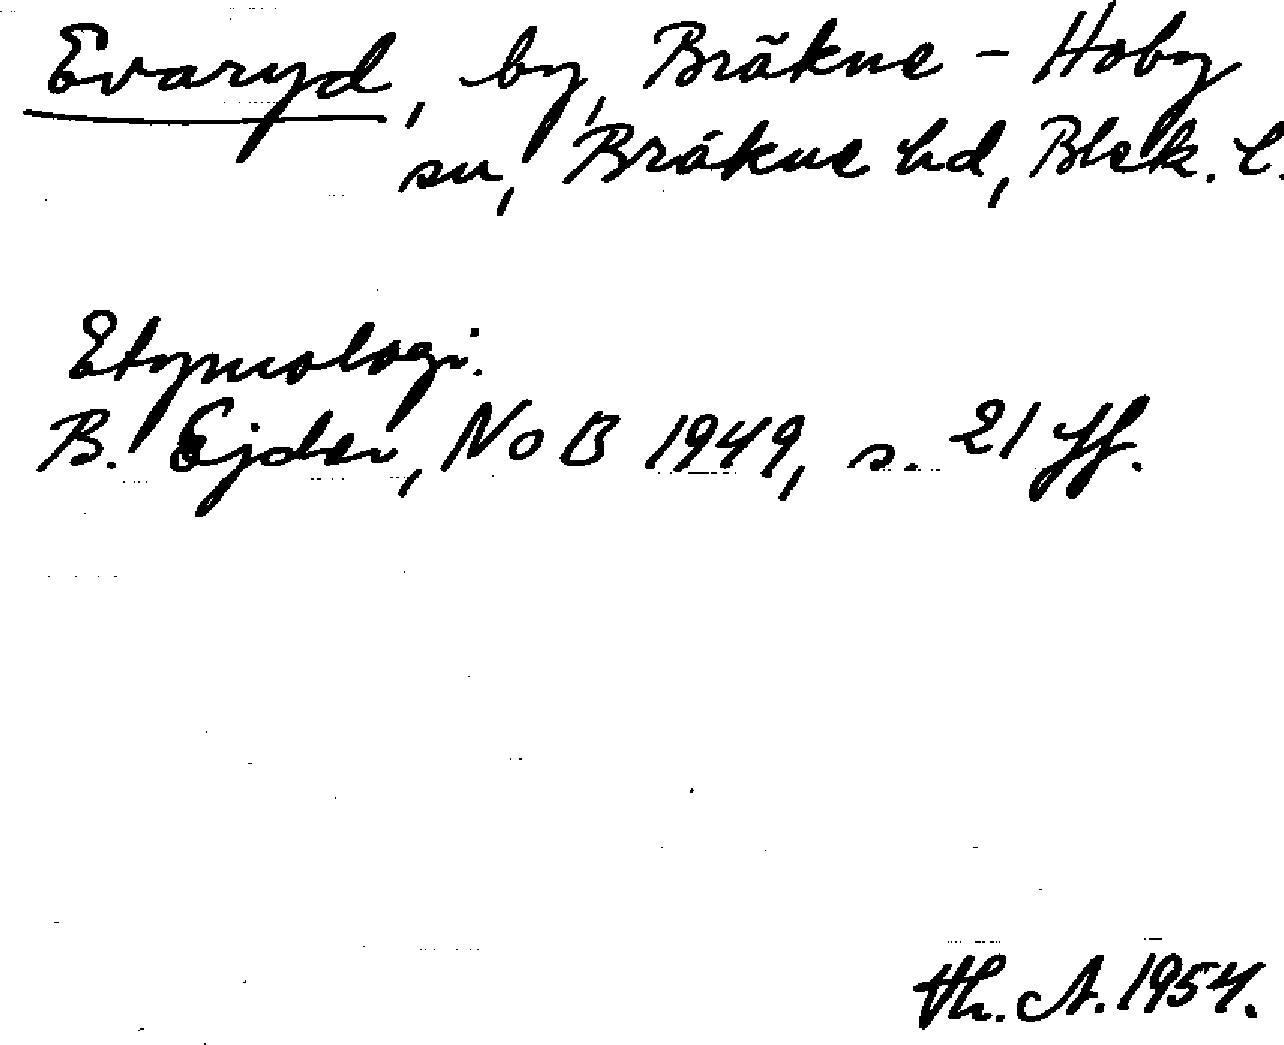 Evaryd, by, Bräkne-Hoby
sn, Bräkne hd, Blek. l.
Etymologi.
B. Ejder, NoB 1949, s. 21 ff.
Th. A. 1954.